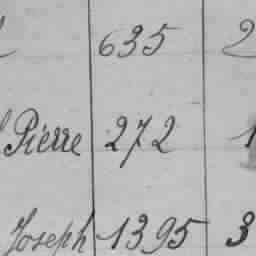 635 2
Pierre 272 1
Joseph 1395 3